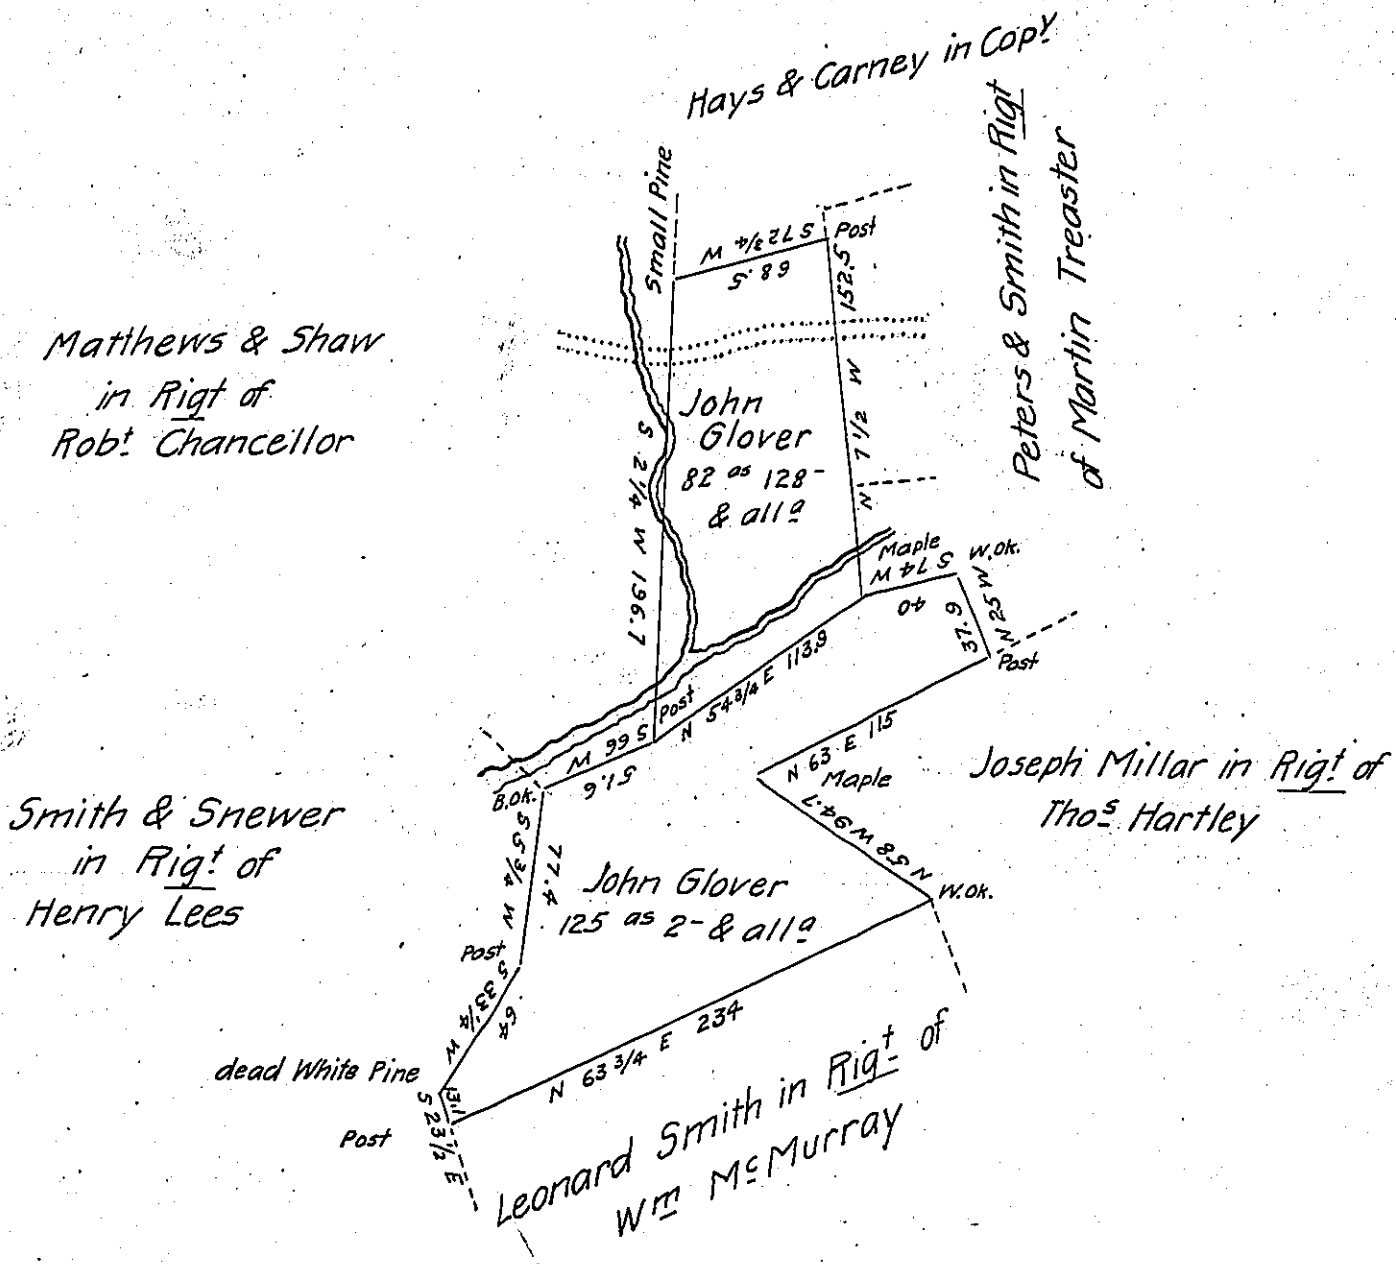 Hays & Carney in Copy
Peters & Smith in Rigt
of Martin Treaster
Small Pine
S 72 3/4 W
68.5
Post
152.5
N 7 1/2 W
Matthews & Shaw
in Rigt of
Robt Chancellor
John
Glover
82 as 128-
& alla
S 2 1/4 W 196.7
Maple
S 74 W
40
W.ok.
N 25 W
37.9
Post
Post
N 54 3/4 E 113.9
S 66 W
51.6
B.Ok.
N 63 E 115
Maple
N 58 W 94.7
W.ok.
Joseph Millar in Rigt of
Thos Hartley
Smith & Snewer
in Rigt of
Henry Lees
S 5 3/4 W
77.4
John Glover
125 as 2- & alla
Post
S 33 1/4 W
64
dead White Pine
13.1
S 23 1/2 E
Post
N 63 3/4 E 234
Leonard Smith in Rigt of
Wm McMurray